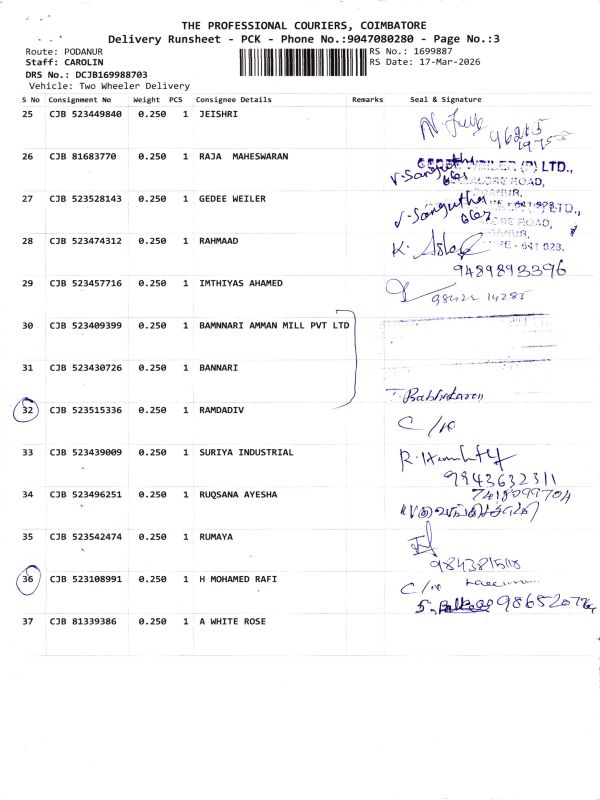 THE PROFESSIONAL COURIERS, COIMBATORE
Delivery Runsheet - PCK - Phone No.:9047080280 - Page No.:3
Route: PODANUR
RS No.: 1699887
Staff: CAROLIN
RS Date: 17-Mar-2026
DRS No.: DCJB169988703
Vehicle: Two Wheeler Delivery
S No Consignment No Weight PCS Consignee Details Remarks Seal & Signature
25 CJB 523449840 0.250 1 JEISHRI
26 CJB 81683770 0.250 1 RAJA MAHESWARAN
GEDEE WEILER (P) LTD.,
27 CJB 523528143 0.250 1 GEDEE WEILER
28 CJB 523474312 0.250 1 RAHMAAD K.
9489893396
29 CJB 523457716 0.250 1 IMTHIYAS AHAMED
30 CJB 523409399 0.250 1 BAMNNARI AMMAN MILL PVT LTD
31 CJB 523430726 0.250 1 BANNARI
32 CJB 523515336 0.250 1 RAMDADIV
33 CJB 523439009 0.250 1 SURIYA INDUSTRIAL
9843632311
34 CJB 523496251 0.250 1 RUQSANA AYESHA
35 CJB 523542474 0.250 1 RUMAYA
36 CJB 523108991 0.250 1 H MOHAMED RAFI
37 CJB 81339386 0.250 1 A WHITE ROSE